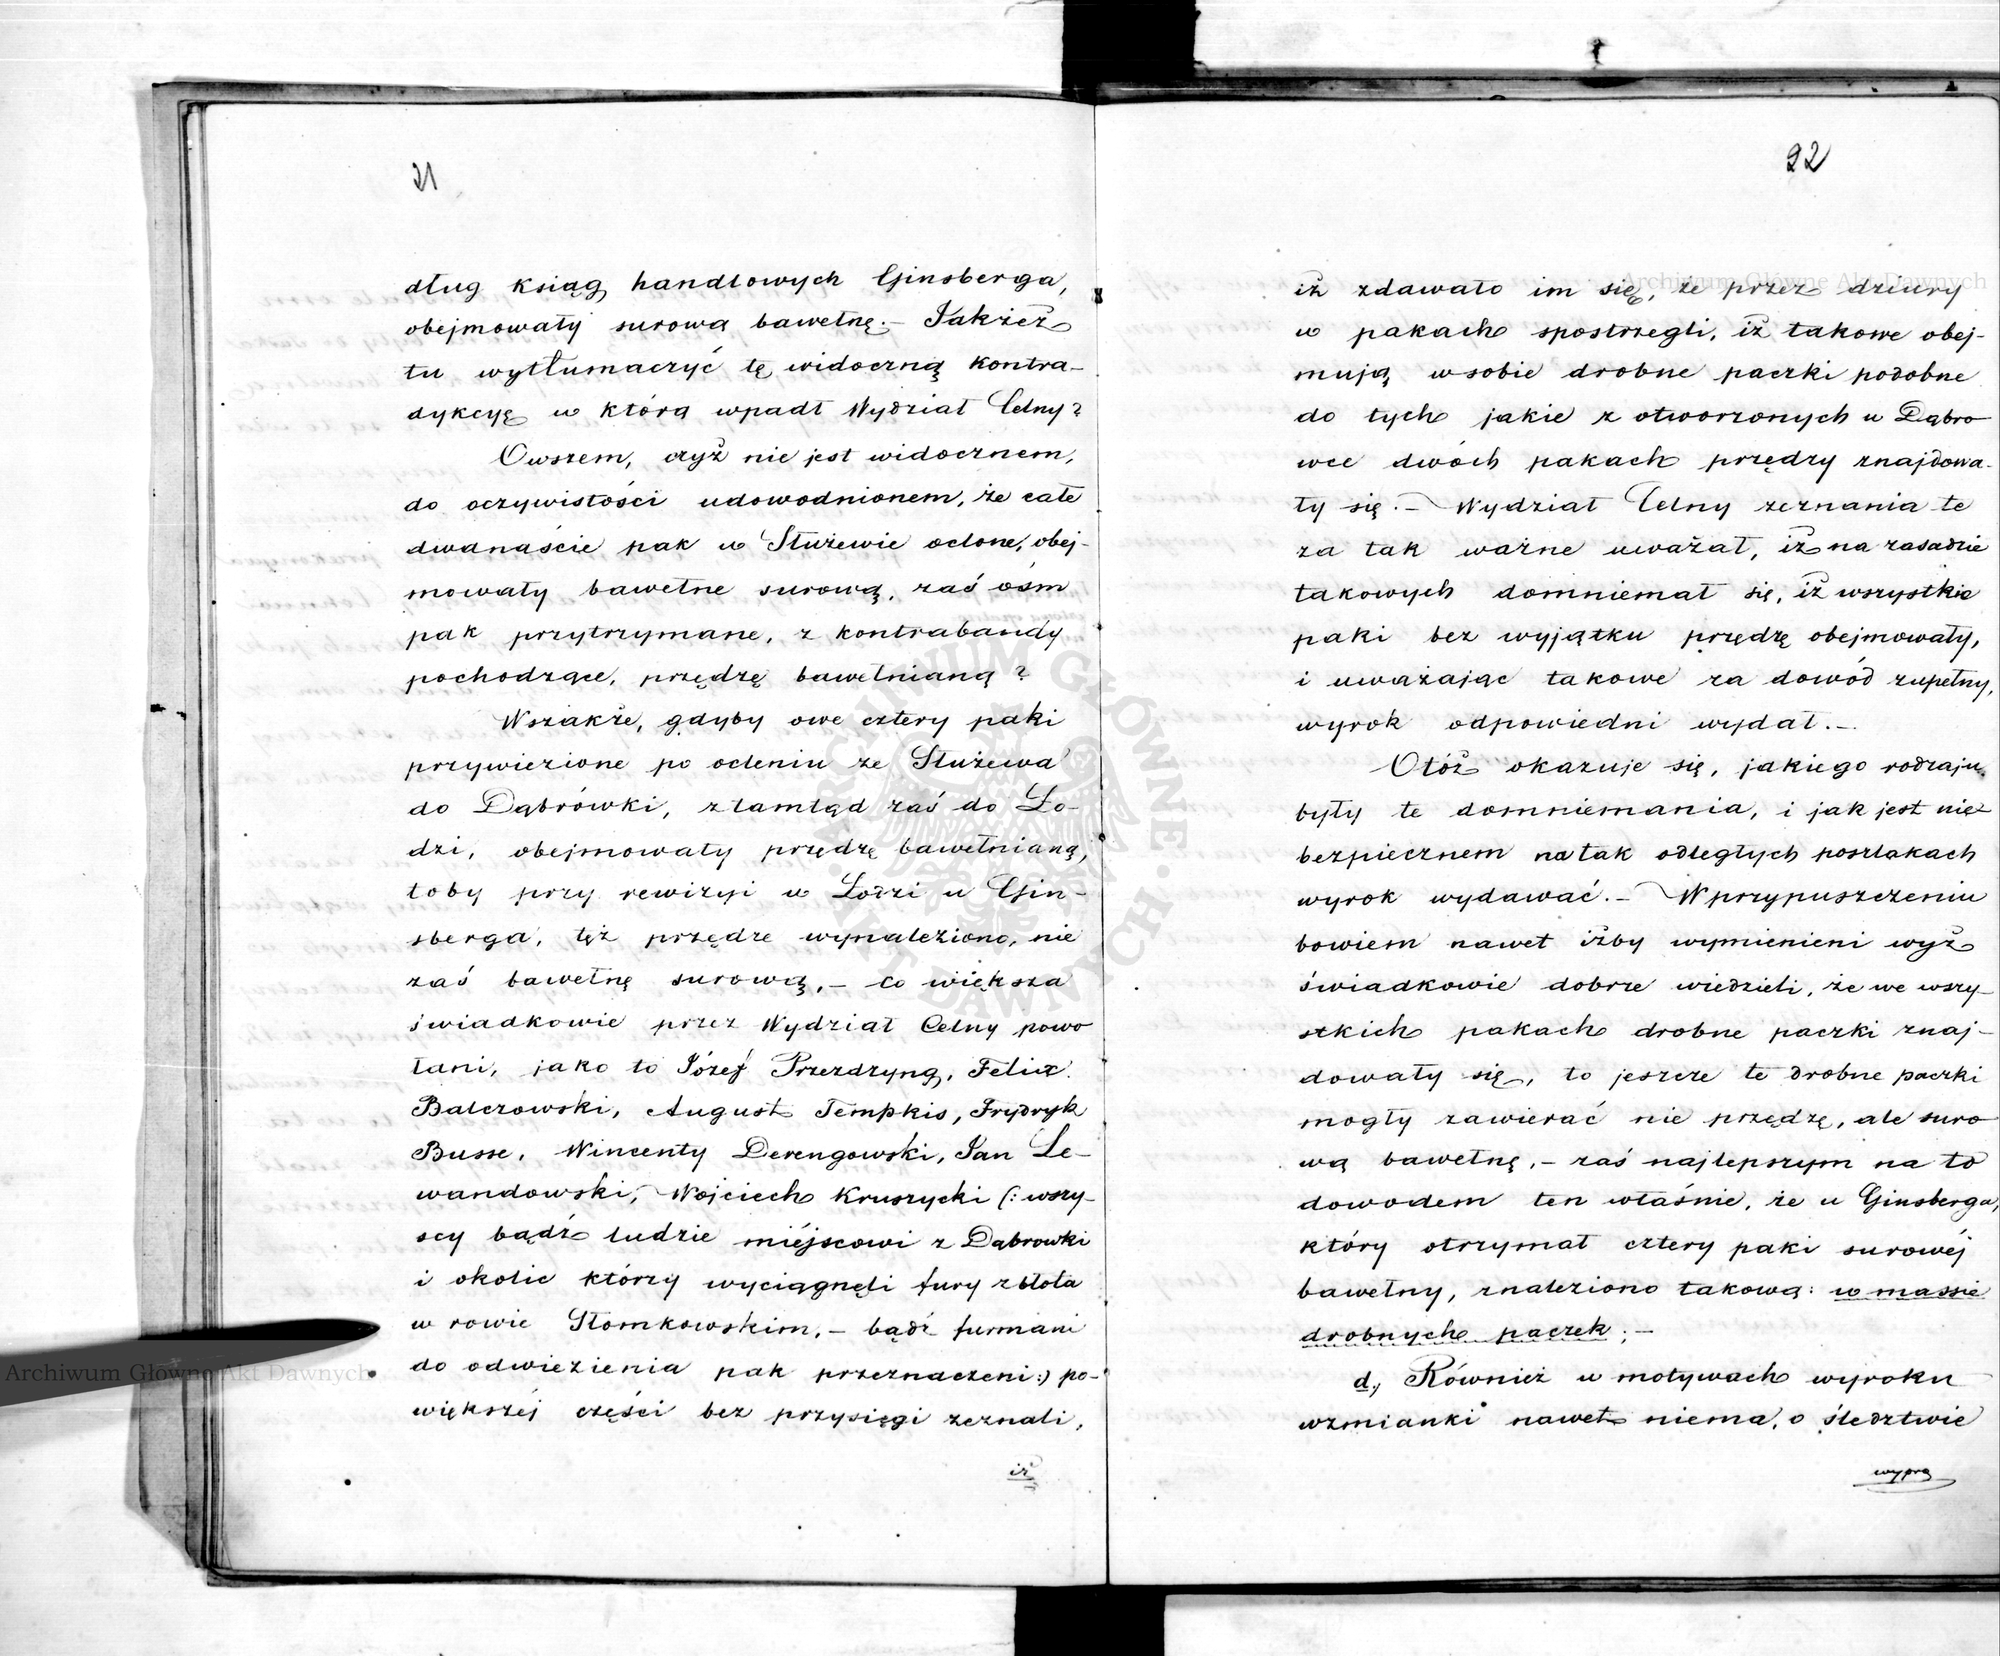 21
dług ksiąg handlowych Ginsberga,
obejmowały surową bawełnę.– Jakżeż
tu wytłumaczyć tę widoczną kontra-
dykcyę w którą wpadł Wydział Celny?
Owszem, czyż nie jest widocznem,
do oczywistości udowodnionem, że całe
dwanaście pak w Służewie oclone, obej-
mowały bawełne surową, zaś ośm
pak przytrzymane, z kontrabandy
pochodzące, przędzę bawełnianą?
Wszakże, gdyby owe cztery paki
przywiezione po ocleniu ze Służewa
do Dąbrówki, ztamtąd zaś do Ło-
dzi, obejmowały przędzę bawełnianą,
toby przy rewizyi w Łodzi u Gin-
sberga, tęż przędze wynaleziono, nie
zaś bawełnę surową,– co większa
świadkowie przez Wydział Celny powo
łani, jako to Józef Przezdzyng, Felix
Balczowski, August Tempkis, Frydryk
Busse, Wincenty Derengowski, Jan Le-
wandowski, Wojciech Kruszycki (: wszy-
scy bądź ludzie miéjscowi z Dąbrowki
i okolic którzy wyciągnęli fury z błota
w rowie Słomkowskim,– bądź furmani
do odwiezienia pak przeznaczeni:) po-
większéj części bez przysięgi zeznali,
iż
22
iż zdawało im się, że przez dziury
w pakach spostrzegli, iż takowe obej-
mują w sobie drobne paczki podobne
do tych jakie z otworzonych w Dąbro
wce dwóch pakach przędzy znajdowa-
ły się.– Wydział Celny zeznania te
za tak ważne uważał, iż na zasadzie
takowych domniemał się, iż wszystkie
paki bez wyjątku przędzę obejmowały,
i uważając takowe za dowód zupełny,
wyrok odpowiedni wydał.–
Otóż okazuje się, jakiego rodzaju
były te domniemania, i jak jest nie
bezpiecznem na tak odległych poszlakach
wyrok wydawać.– W przypuszczeniu
bowiem nawet iżby wymienieni wyż
świadkowie dobrze wiedzieli, że we wszy-
stkich pakach drobne paczki znaj-
dowały się, to jeszcze te drobne paczki
mogły zawierać nie przędzę, ale suro
wą bawełnę,– zaś najlepszym na to
dowodem ten właśnie, że u Ginsberga,
który otrzymał cztery paki surowéj
bawełny, znaleziono takową: w massie
drobnych paczek;–
d, Również w motywach wyroku
wzmianki nawet niema, o śledztwie
wypro
Archiwum Główne Akt Dawnych
Archiwum Główne Akt Dawnych
ARCHIWUM GŁÓWNE AKT DAWNYCH